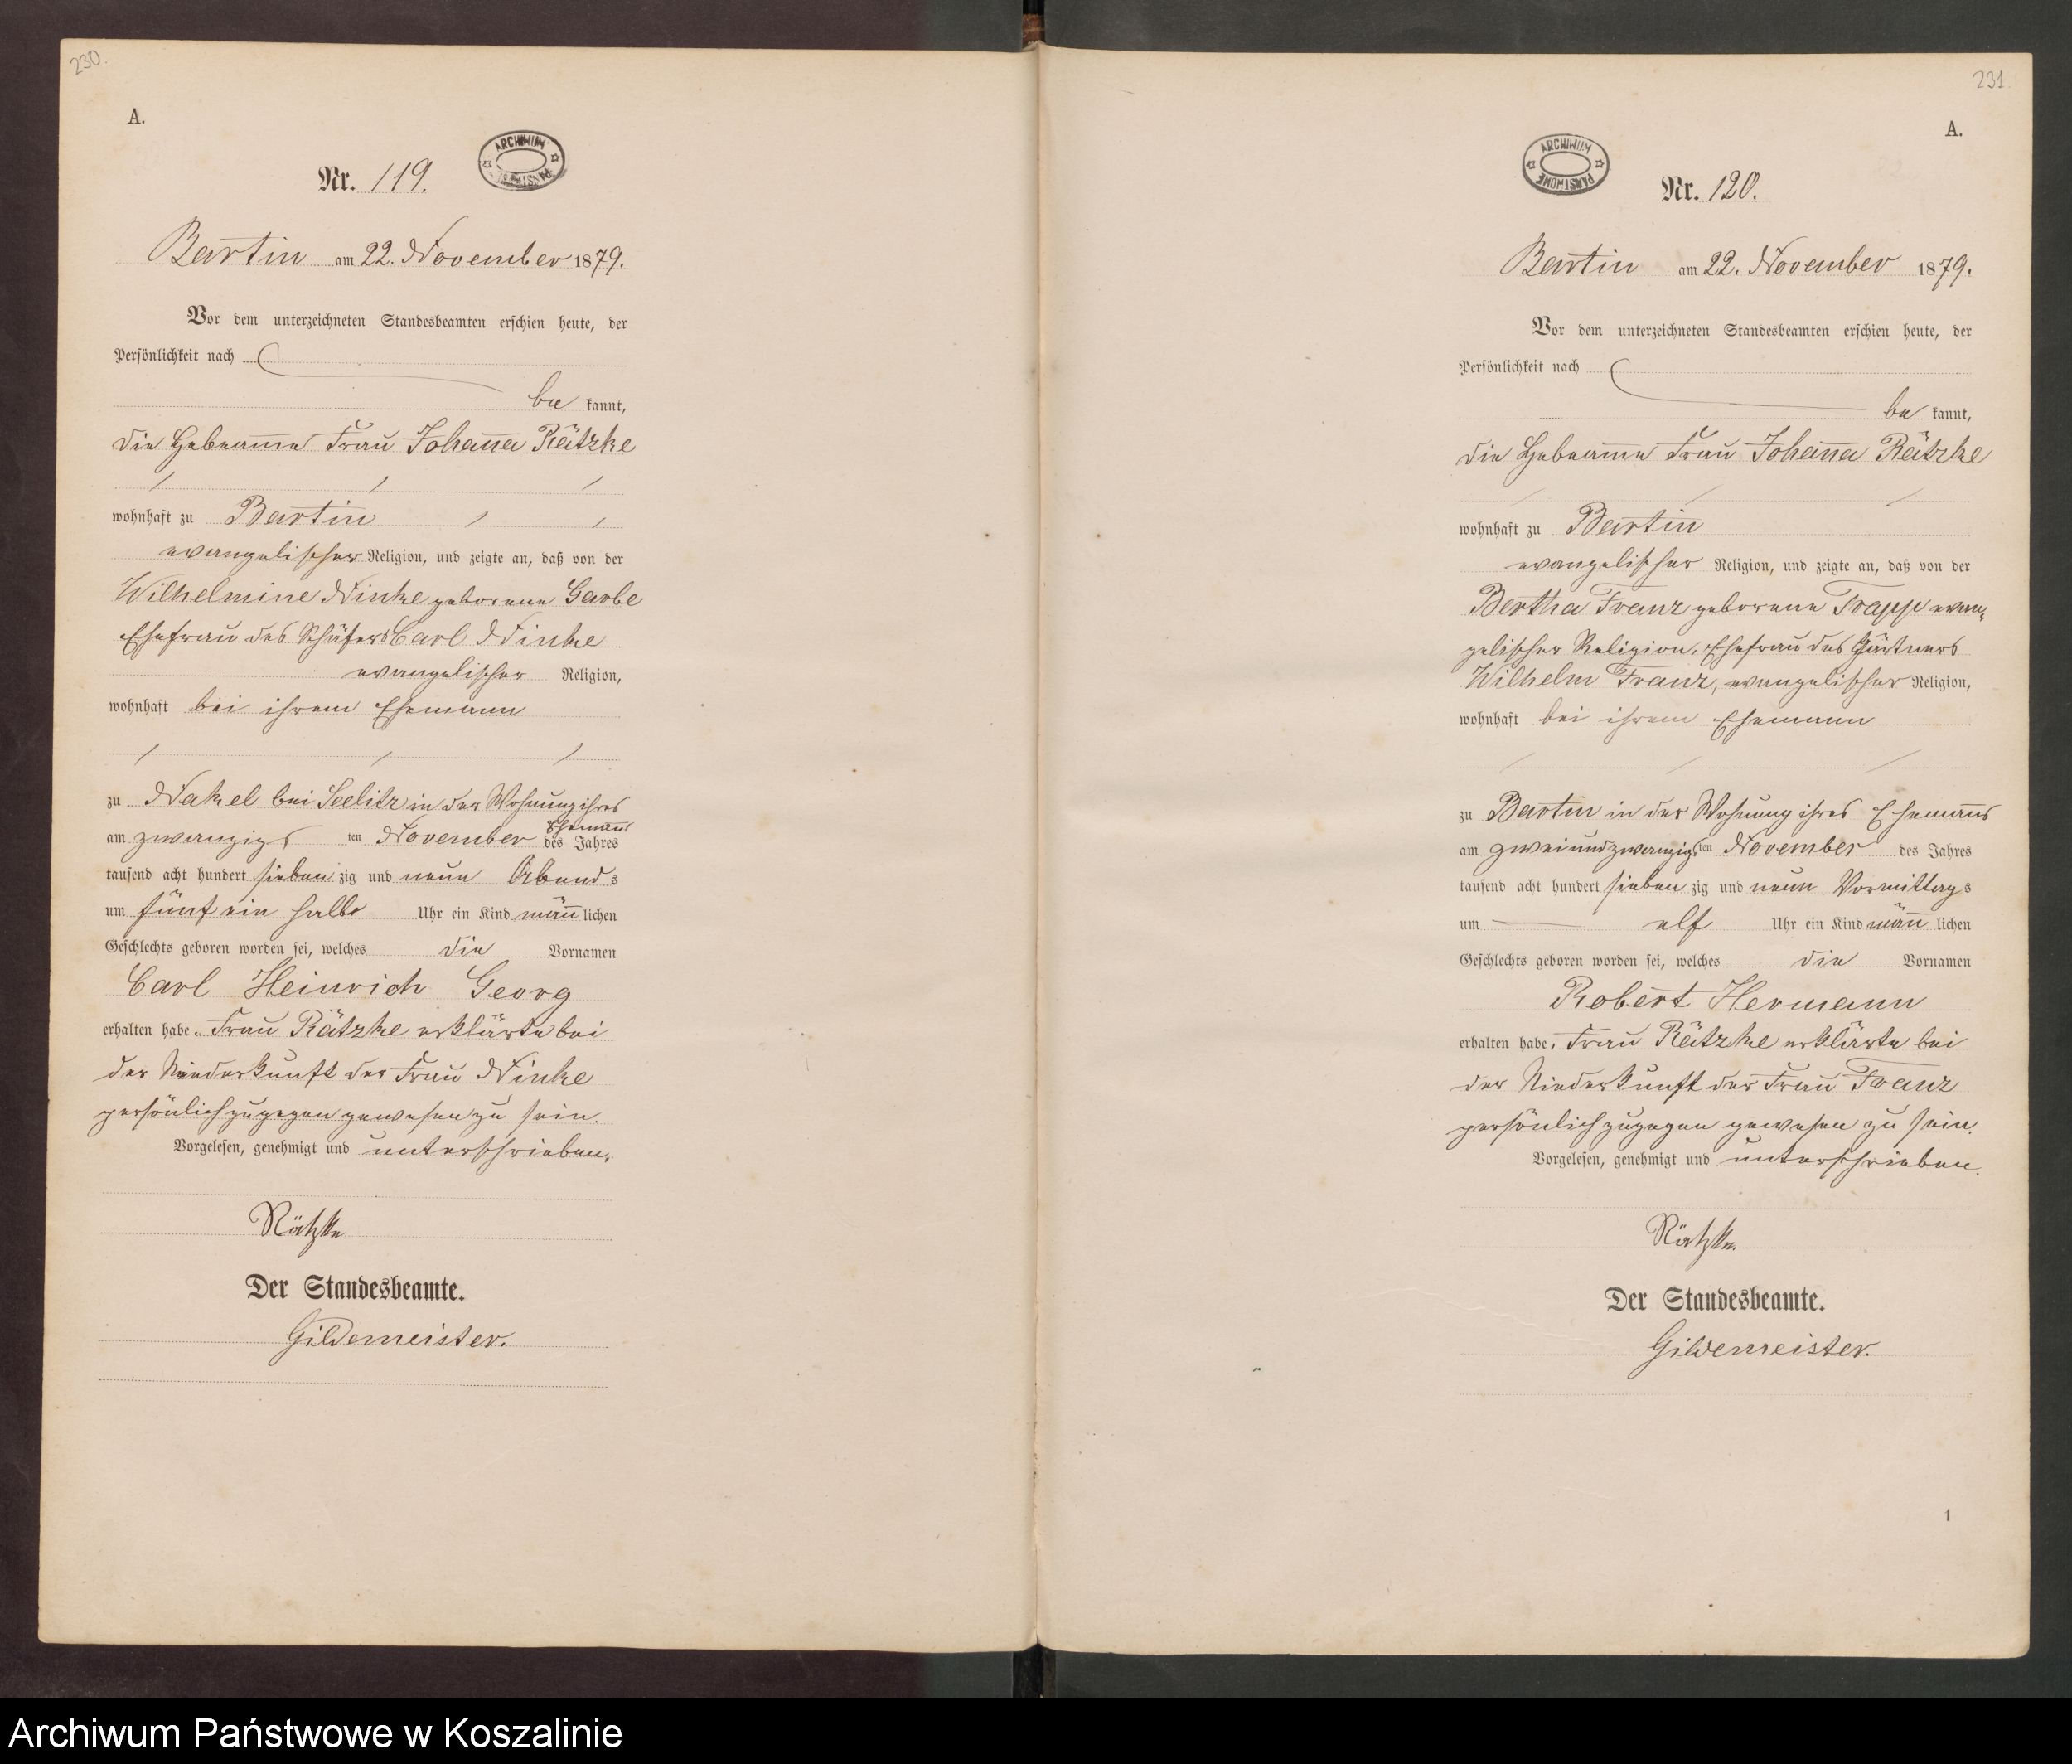 230.
A.
ARCHIWUM PAŃSTWOWE
Nr. 119.
Bartin am 22. November 1879.
Vor dem unterzeichneten Standesbeamten erschien heute, der
Persönlichkeit nach
be kannt,
die Hebeam̅e Frau Johan̅a Rätzke
wohnhaft zu Bartin
evangelischer Religion, und zeigte an, daß von der
Wilhelmine Ninke geborene Garbe
Ehefrau des Schäfers Carl Ninke
evangelischer Religion,
wohnhaft bei ihrem Ehemann
zu Nakel bei Seelitz in der Wohnung ihres
Ehemanns
am zwanzigs ten November des Jahres
tausend acht hundert sieben zig und neun Abends
um fünf ein halb Uhr ein Kind män̅lichen
Geschlechts geboren worden sei, welches die Vornamen
Carl Heinrich Georg
erhalten habe. Frau Rätzke erklärte bei
der Niederkunft der Frau Ninke
persönlich zugegen gewesen zu sein.
Vorgelesen, genehmigt und unterschrieben.
Rätzke
Der Standesbeamte.
Gildemeister.
231
A.
ARCHIWUM PAŃSTWOWE
Nr. 120.
Bartin am 22. November 1879.
Vor dem unterzeichneten Standesbeamten erschien heute, der
Persönlichkeit nach
be kannt,
die Hebeam̅e Frau Johan̅a Rätzke
wohnhaft zu Bartin
evangelischer Religion, und zeigte an, daß von der
Bertha Franz geborene Trapp evan-
gelischer Religion, Ehefrau des Gärtners
Wilhelm Franz, evangelischer Religion,
wohnhaft bei ihrem Ehemann
zu Bartin in der Wohnung ihres Eheman̅s
am zweiundzwanzigs ten November des Jahres
tausend acht hundert sieben zig und neun Vormittags
um elf Uhr ein Kind män̅lichen
Geschlechts geboren worden sei, welches die Vornamen
Robert Hermann
erhalten habe. Frau Rätzke erklärte bei
der Niederkunft der Frau Franz
persönlich zugegen gewesen zu sein.
Vorgelesen, genehmigt und unterschrieben.
Rätzke.
Der Standesbeamte.
Gildemeister.
1
Archiwum Państwowe w Koszalinie